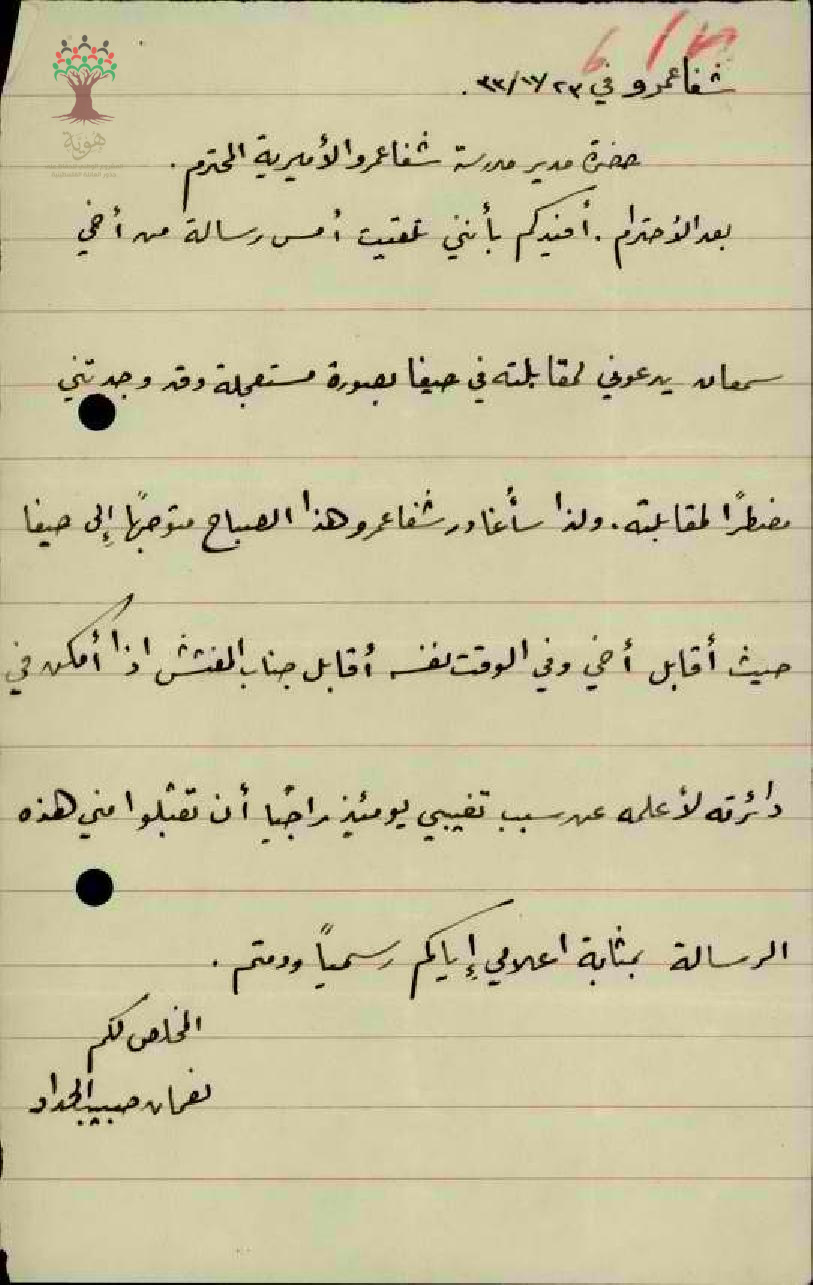 شفاعمرو في ٢٣/١١/٣٣.
حضرة مدير مدرسة شفاعمرو الأميرية المحترم.
بعد الاحترام. أفيدكم بأنني تلقيت أمس رسالة من أخي
سمعان يدعوني لمقابلته في حيفا بصورة مستعجلة وقد وجدتني
مضطرًا لمقابلته. ولذا سأغادر شفاعمرو هذا الصباح متوجهًا إلى حيفا
حيث أقابل أخي وفي الوقت نفسه أقابل جناب المفتش اذا أمكن في
دائرته لأعلمه عن سبب تغيبي يومئذٍ راجيًا أن تقبلوا مني هذه
الرسالة بمثابة اعلامي إياكم رسمياً ودمتم.
المخلص لكم
نعمان حبيب الحداد
هوية